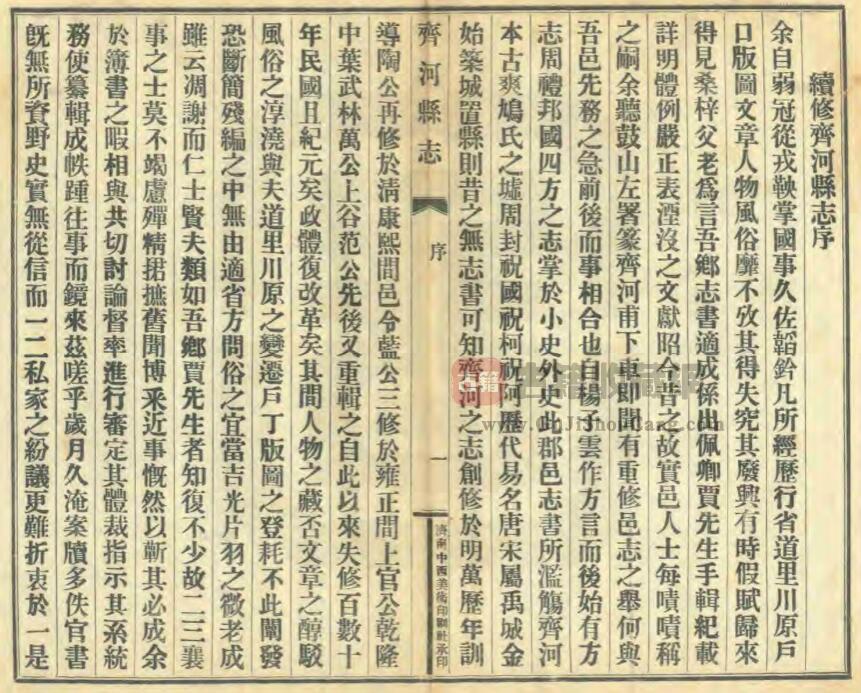 續修齊河縣志序
余自弱冠從戎鞅掌國事久佐韜鈐凡所經歷行省道里川原戶
口版圖文章人物風俗靡不攷其得失究其廢興有時假賦歸來
得見桑梓父老爲言吾鄉志書適成係出佩卿賈先生手輯紀載
詳明體例嚴正表湮沒之文獻昭今昔之故實邑人士每嘖嘖稱
之嗣余聽鼓山左署篆齊河甫下車即聞有重修邑志之舉何與
吾邑先務之急前後而事相合也自揚子雲作方言而後始有方
志周禮邦國四方之志掌於小史外史此郡邑志書所濫觴齊河
本古爽鳩氏之墟周封祝國祝柯祝阿歷代易名唐宋屬禹城金
始築城置縣則昔之無志書可知齊河之志創修於明萬歷年訓
齊河縣志
序
一
濟南中西美術印刷社承印
導陶公再修於淸康熙間邑令藍公三修於雍正間上官公乾隆
中葉武林萬公上谷范公先後又重輯之自此以來失修百數十
年民國且紀元矣政體復改革矣其間人物之藏否文章之醇駁
風俗之淳澆與夫道里川原之變遷戶丁版圖之登耗不此闡發
恐斷簡殘編之中無由適省方問俗之宜當吉光片羽之微老成
雖云凋謝而仁士賢夫類如吾鄕賈先生者知復不少故二三襄
事之士莫不竭慮殫精捃摭舊聞博釆近事慨然以蘄其必成余
於簿書之暇相與共切討論督率進行審定其體裁指示其系統
務使纂輯成帙踵往事而鏡來茲嗟乎歲月久淹案牘多佚官書
旣無所資野史實無從信而一二私家之紛議更難折衷於一是
古籍
www.GuJiShouCang.com